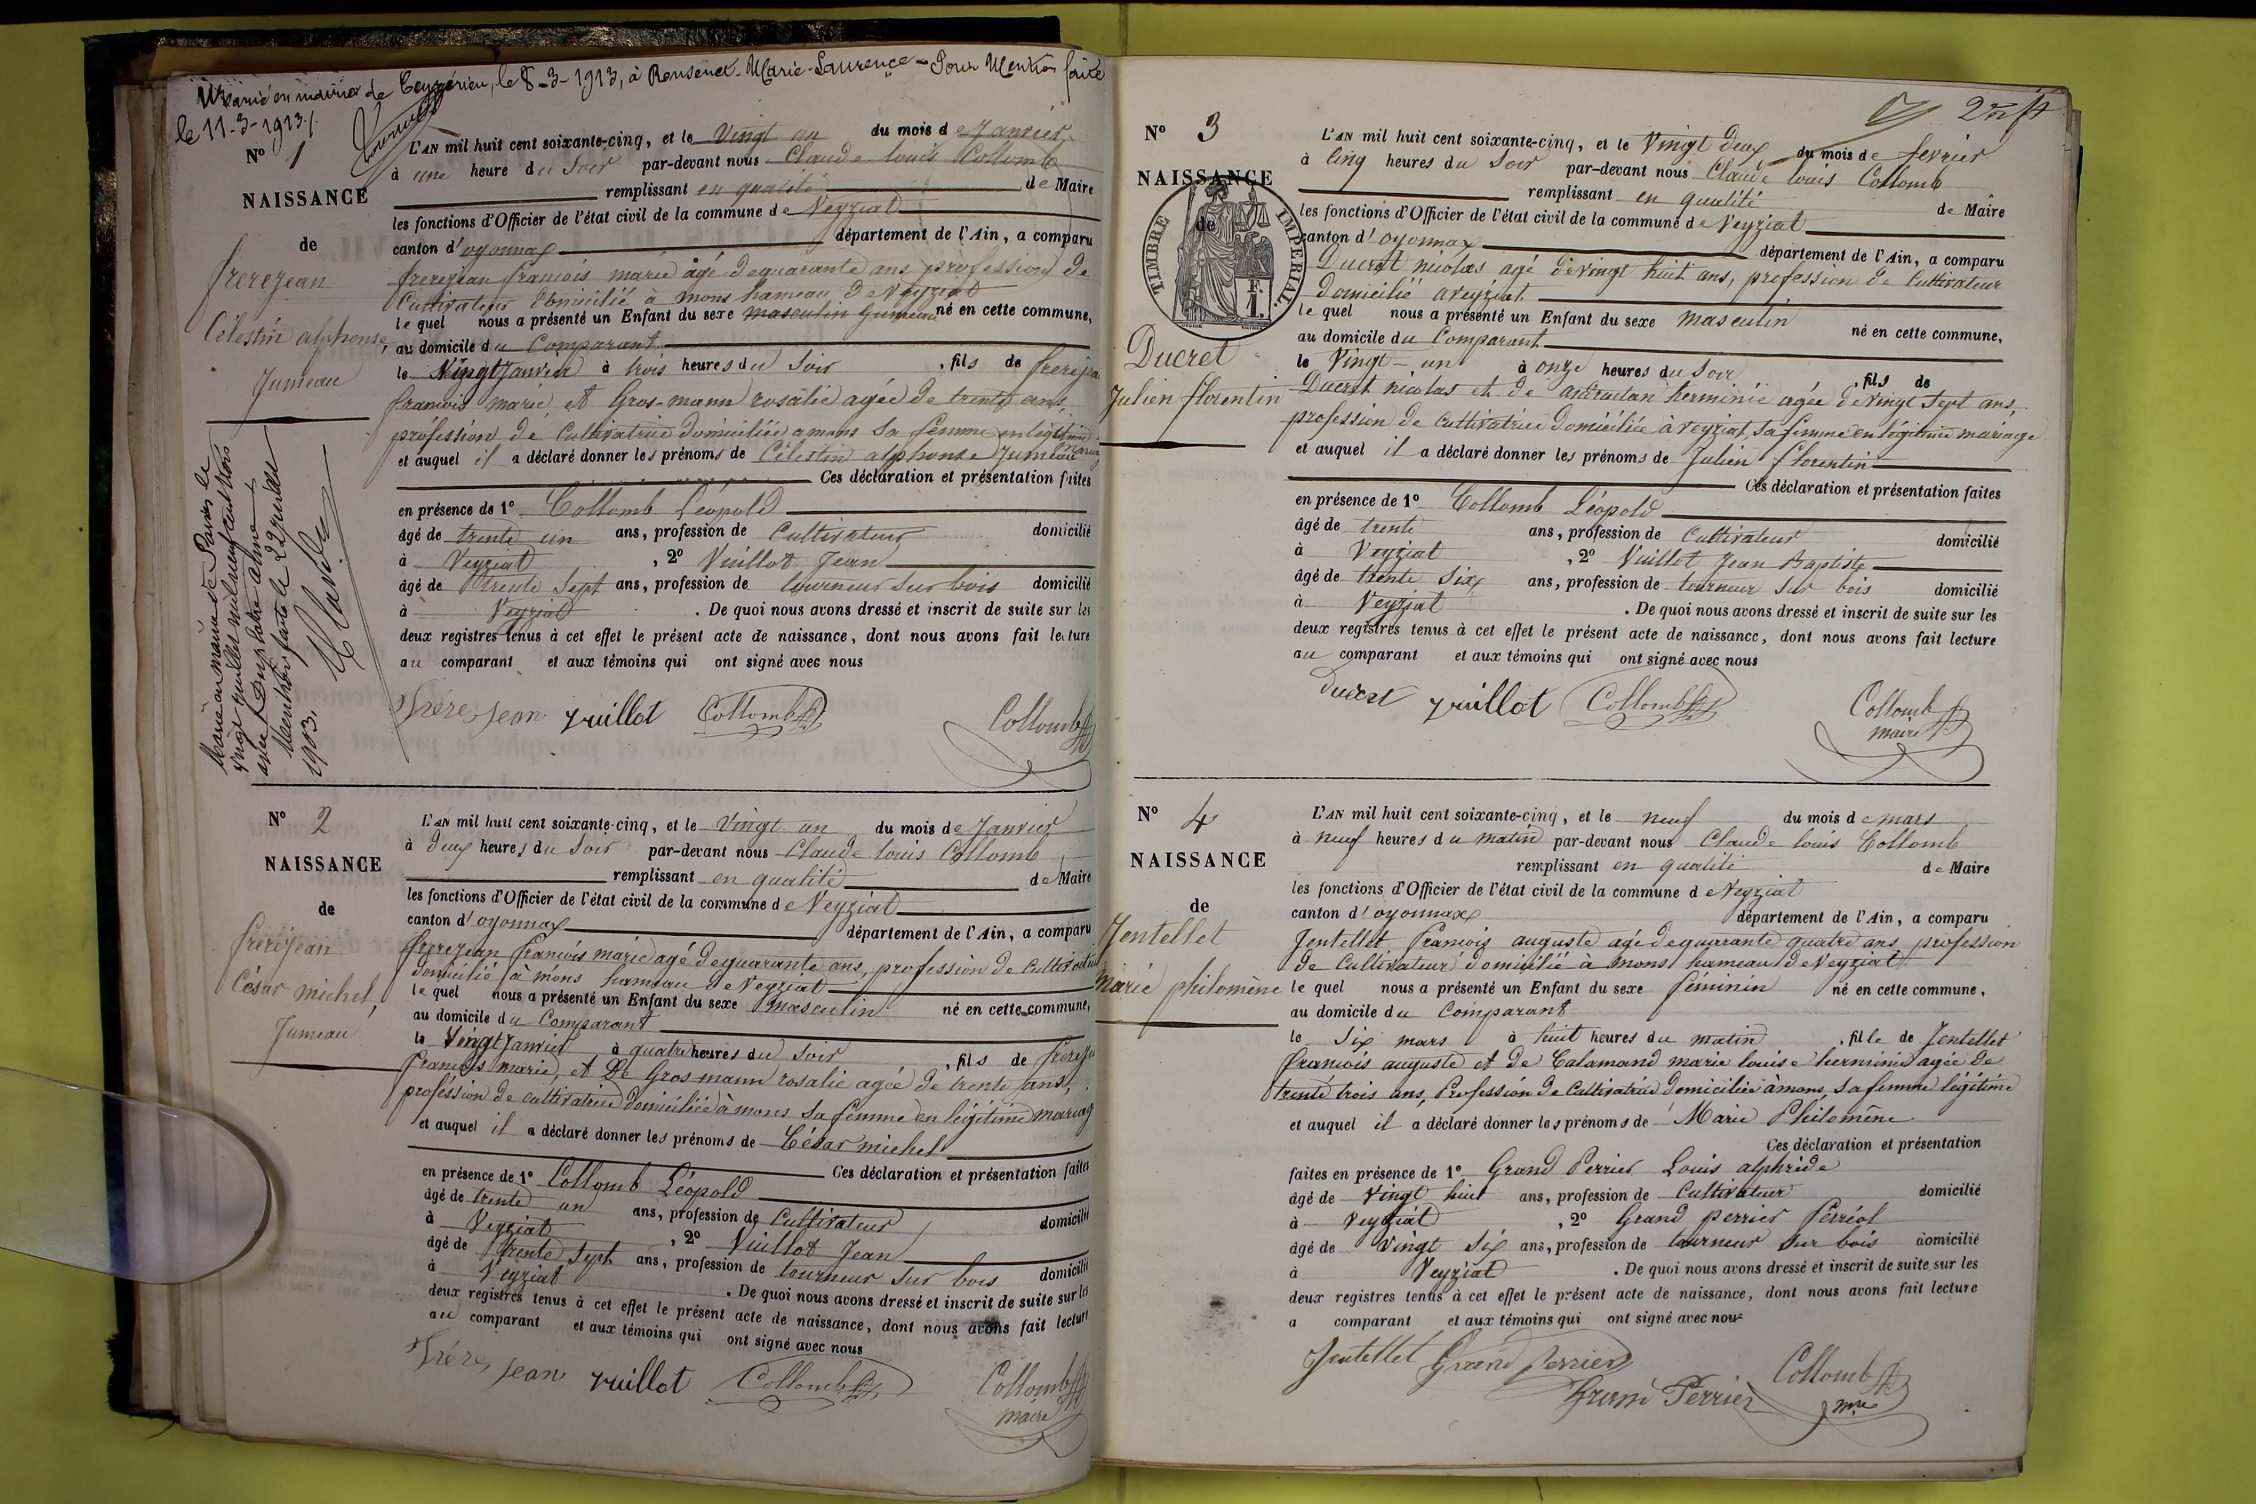 Marié en mairie de Ceyzérieu, le 8-3-1913, à Rousenet Marie-Laurence - Pour Mention faite
le 11-3-1913.
N° 1
NAISSANCE
de
frerejean
Célestin alphonse,
Jumeau
Marié en mairie de Paris le
vingt juillet mil neuf cent trois
avec
Mention faite le 22 juillet
1903.
L'AN mil huit cent soixante-cinq, et le Vingt un du mois de Janvier
à une heure du Soir par-devant nous Claude louis Collomb
remplissant en qualité de Maire
les fonctions d'Officier de l'état civil de la commune de Veyziat
canton d'oyonnax département de l'Ain, a comparu
frerejean francois marie âgé de quarante ans profession de
Cultivateur domicilié à mons hameau de Veyziat
le quel nous a présenté un Enfant du sexe masculin Jumeau né en cette commune,
au domicile du Comparant
le Vingt Janvier à trois heures du Soir, fils de frerejean
francois marie, et Gros-mann rosalie agée de trente ans,
profession de Cultivatrice domiciliée a mons Sa femme en légitime mariage
et auquel il a déclaré donner les prénoms de Célestin alphonse Jumeau
Ces déclaration et présentation faites
en présence de 1° Collomb Léopold
âgé de trente un ans, profession de Cultivateur domicilié
à Veyziat, 2° Vuillot Jean
âgé de trente Sept ans, profession de tourneur Sur bois domicilié
à Veyziat. De quoi nous avons dressé et inscrit de suite sur les
deux registres tenus à cet effet le présent acte de naissance, dont nous avons fait lecture
au comparant et aux témoins qui ont signé avec nous
Frere Jean Vuillot Collomb Collomb
N° 2
NAISSANCE
de
frerejean
César michel,
Jumeau
L'AN mil huit cent soixante-cinq, et le Vingt un du mois de Janvier
à deux heures du Soir par-devant nous Claude louis Collomb
remplissant en qualité de Maire
les fonctions d'Officier de l'état civil de la commune de Veyziat
canton d'oyonnax département de l'Ain, a comparu
frerejean francois marie agé de quarante ans, profession de Cultivateur
domicilié à mons hameau de Veyziat
le quel nous a présenté un Enfant du sexe masculin né en cette commune,
au domicile du Comparant
le Vingt Janvier à quatre heures du Soir, fils de frerejean
francois marie, et de Gros mann rosalie agée de trente ans,
profession de cultivatrice domiciliée à mons Sa femme en légitime mariage
et auquel il a déclaré donner les prénoms de César michel
Ces déclaration et présentation faites
en présence de 1° Collomb Léopold
âgé de trente un ans, profession de Cultivateur domicilié
à Veyziat, 2° Vuillot Jean
âgé de trente Sept ans, profession de tourneur Sur bois domicilié
à Veyziat. De quoi nous avons dressé et inscrit de suite sur les
deux registres tenus à cet effet le présent acte de naissance, dont nous avons fait lecture
au comparant et aux témoins qui ont signé avec nous
Frere Jean Vuillot Collomb Collomb
maire
N° 3
NAISSANCE
de
TIMBRE IMPERIAL.
F.
1.
Ducret
Julien florentin
L'AN mil huit cent soixante-cinq, et le Vingt deux du mois de fevrier
à Cinq heures du Soir par-devant nous Claude louis Collomb
remplissant en qualité de Maire
les fonctions d'Officier de l'état civil de la commune de Veyziat
canton d'oyonnax département de l'Ain, a comparu
Ducret nicolas agé de vingt huit ans, profession de Cultivateur
domicilié a veyziat
le quel nous a présenté un Enfant du sexe masculin né en cette commune,
au domicile du Comparant
le Vingt-un à onze heures du Soir, fils de
Ducret nicolas et de herminie agée de vingt Sept ans,
profession de cultivatrice domiciliée à veyziat, Sa femme en légitime mariage
et auquel il a déclaré donner les prénoms de Julien florentin
Ces déclaration et présentation faites
en présence de 1° Collomb Léopold
âgé de trente ans, profession de Cultivateur domicilié
à Veyziat, 2° Vuillot Jean Baptiste
âgé de trente Six ans, profession de tourneur Sur bois domicilié
à Veyziat. De quoi nous avons dressé et inscrit de suite sur les
deux registres tenus à cet effet le présent acte de naissance, dont nous avons fait lecture
au comparant et aux témoins qui ont signé avec nous
Ducret Vuillot Collomb Collomb
maire
N° 4
NAISSANCE
de
Jentellet
Marie philomène
L'AN mil huit cent soixante-cinq, et le neuf du mois de mars
à neuf heures du matin par-devant nous Claude louis Collomb
remplissant en qualité de Maire
les fonctions d'Officier de l'état civil de la commune de Veyziat
canton d'oyonnax département de l'Ain, a comparu
Jentellet francois auguste agé de quarante quatre ans profession
de Cultivateur domicilié à mons hameau de Veyziat
le quel nous a présenté un Enfant du sexe féminin né en cette commune,
au domicile du Comparant
le Six mars à huit heures du matin, fille de Jentellet
francois auguste et de Calamand marie louise herminie agée de
trente trois ans, Profession de Cultivatrice domiciliée à mons, Sa femme légitime
et auquel il a déclaré donner les prénoms de Marie Philomène
Ces déclaration et présentation
faites en présence de 1° Grand Perrier Louis alphride
âgé de Vingt huit ans, profession de Cultivateur domicilié
à Veyziat, 2° Grand perrier Perréol
âgé de Vingt Six ans, profession de tourneur Sur bois domicilié
à Veyziat. De quoi nous avons dressé et inscrit de suite sur les
deux registres tenus à cet effet le présent acte de naissance, dont nous avons fait lecture
a comparant et aux témoins qui ont signé avec nous
Jentellet Grand Perrier Collomb
Grand Perrier mre